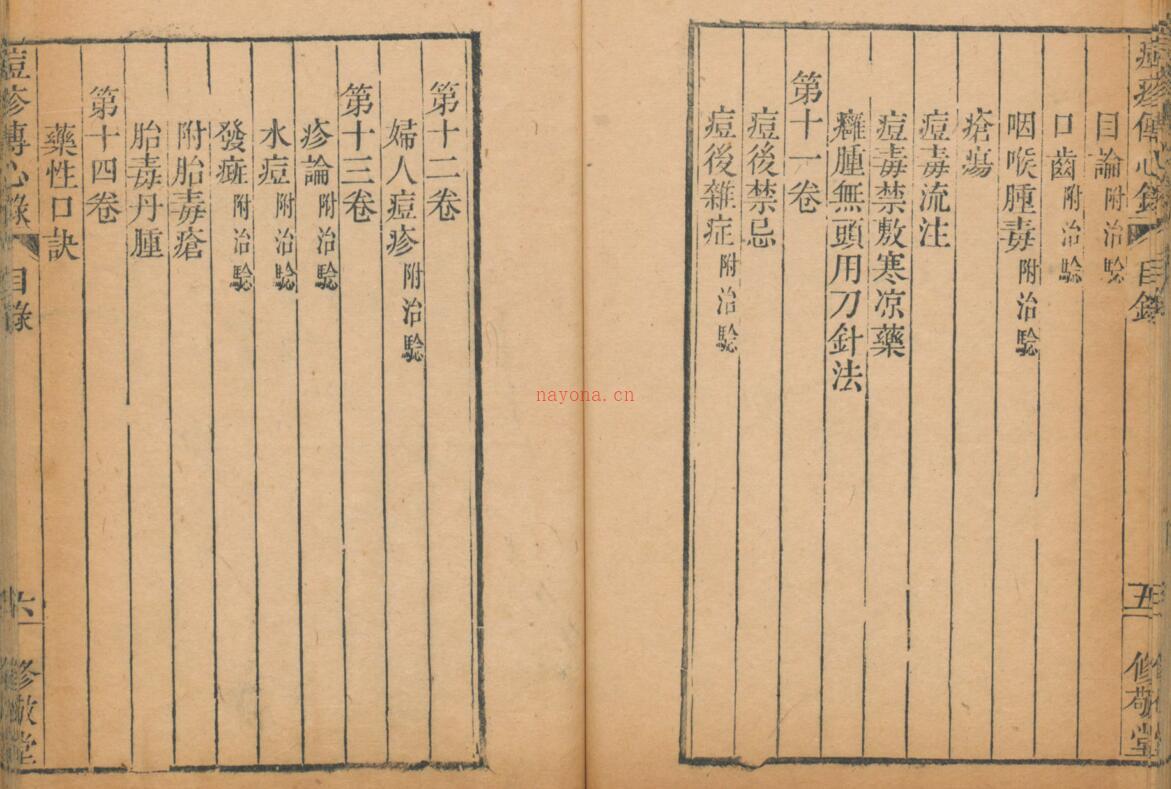 痘疹傳心錄 目錄 五 修敬堂
目論 附治驗
口齒 附治驗
咽喉腫毒 附治驗
瘡瘍
痘毒流注
痘毒禁敷寒凉藥
癰腫無頭用刀針法
第十一卷
痘後禁忌
痘後雜症 附治驗
nayona.cn
第十二卷
婦人痘疹 附治驗
第十三卷
疹論 附治驗
水痘 附治驗
發癍 附治驗
附胎毒瘡
胎毒丹腫
第十四卷
藥性口訣
痘疹傳心錄 目錄 六 修敬堂